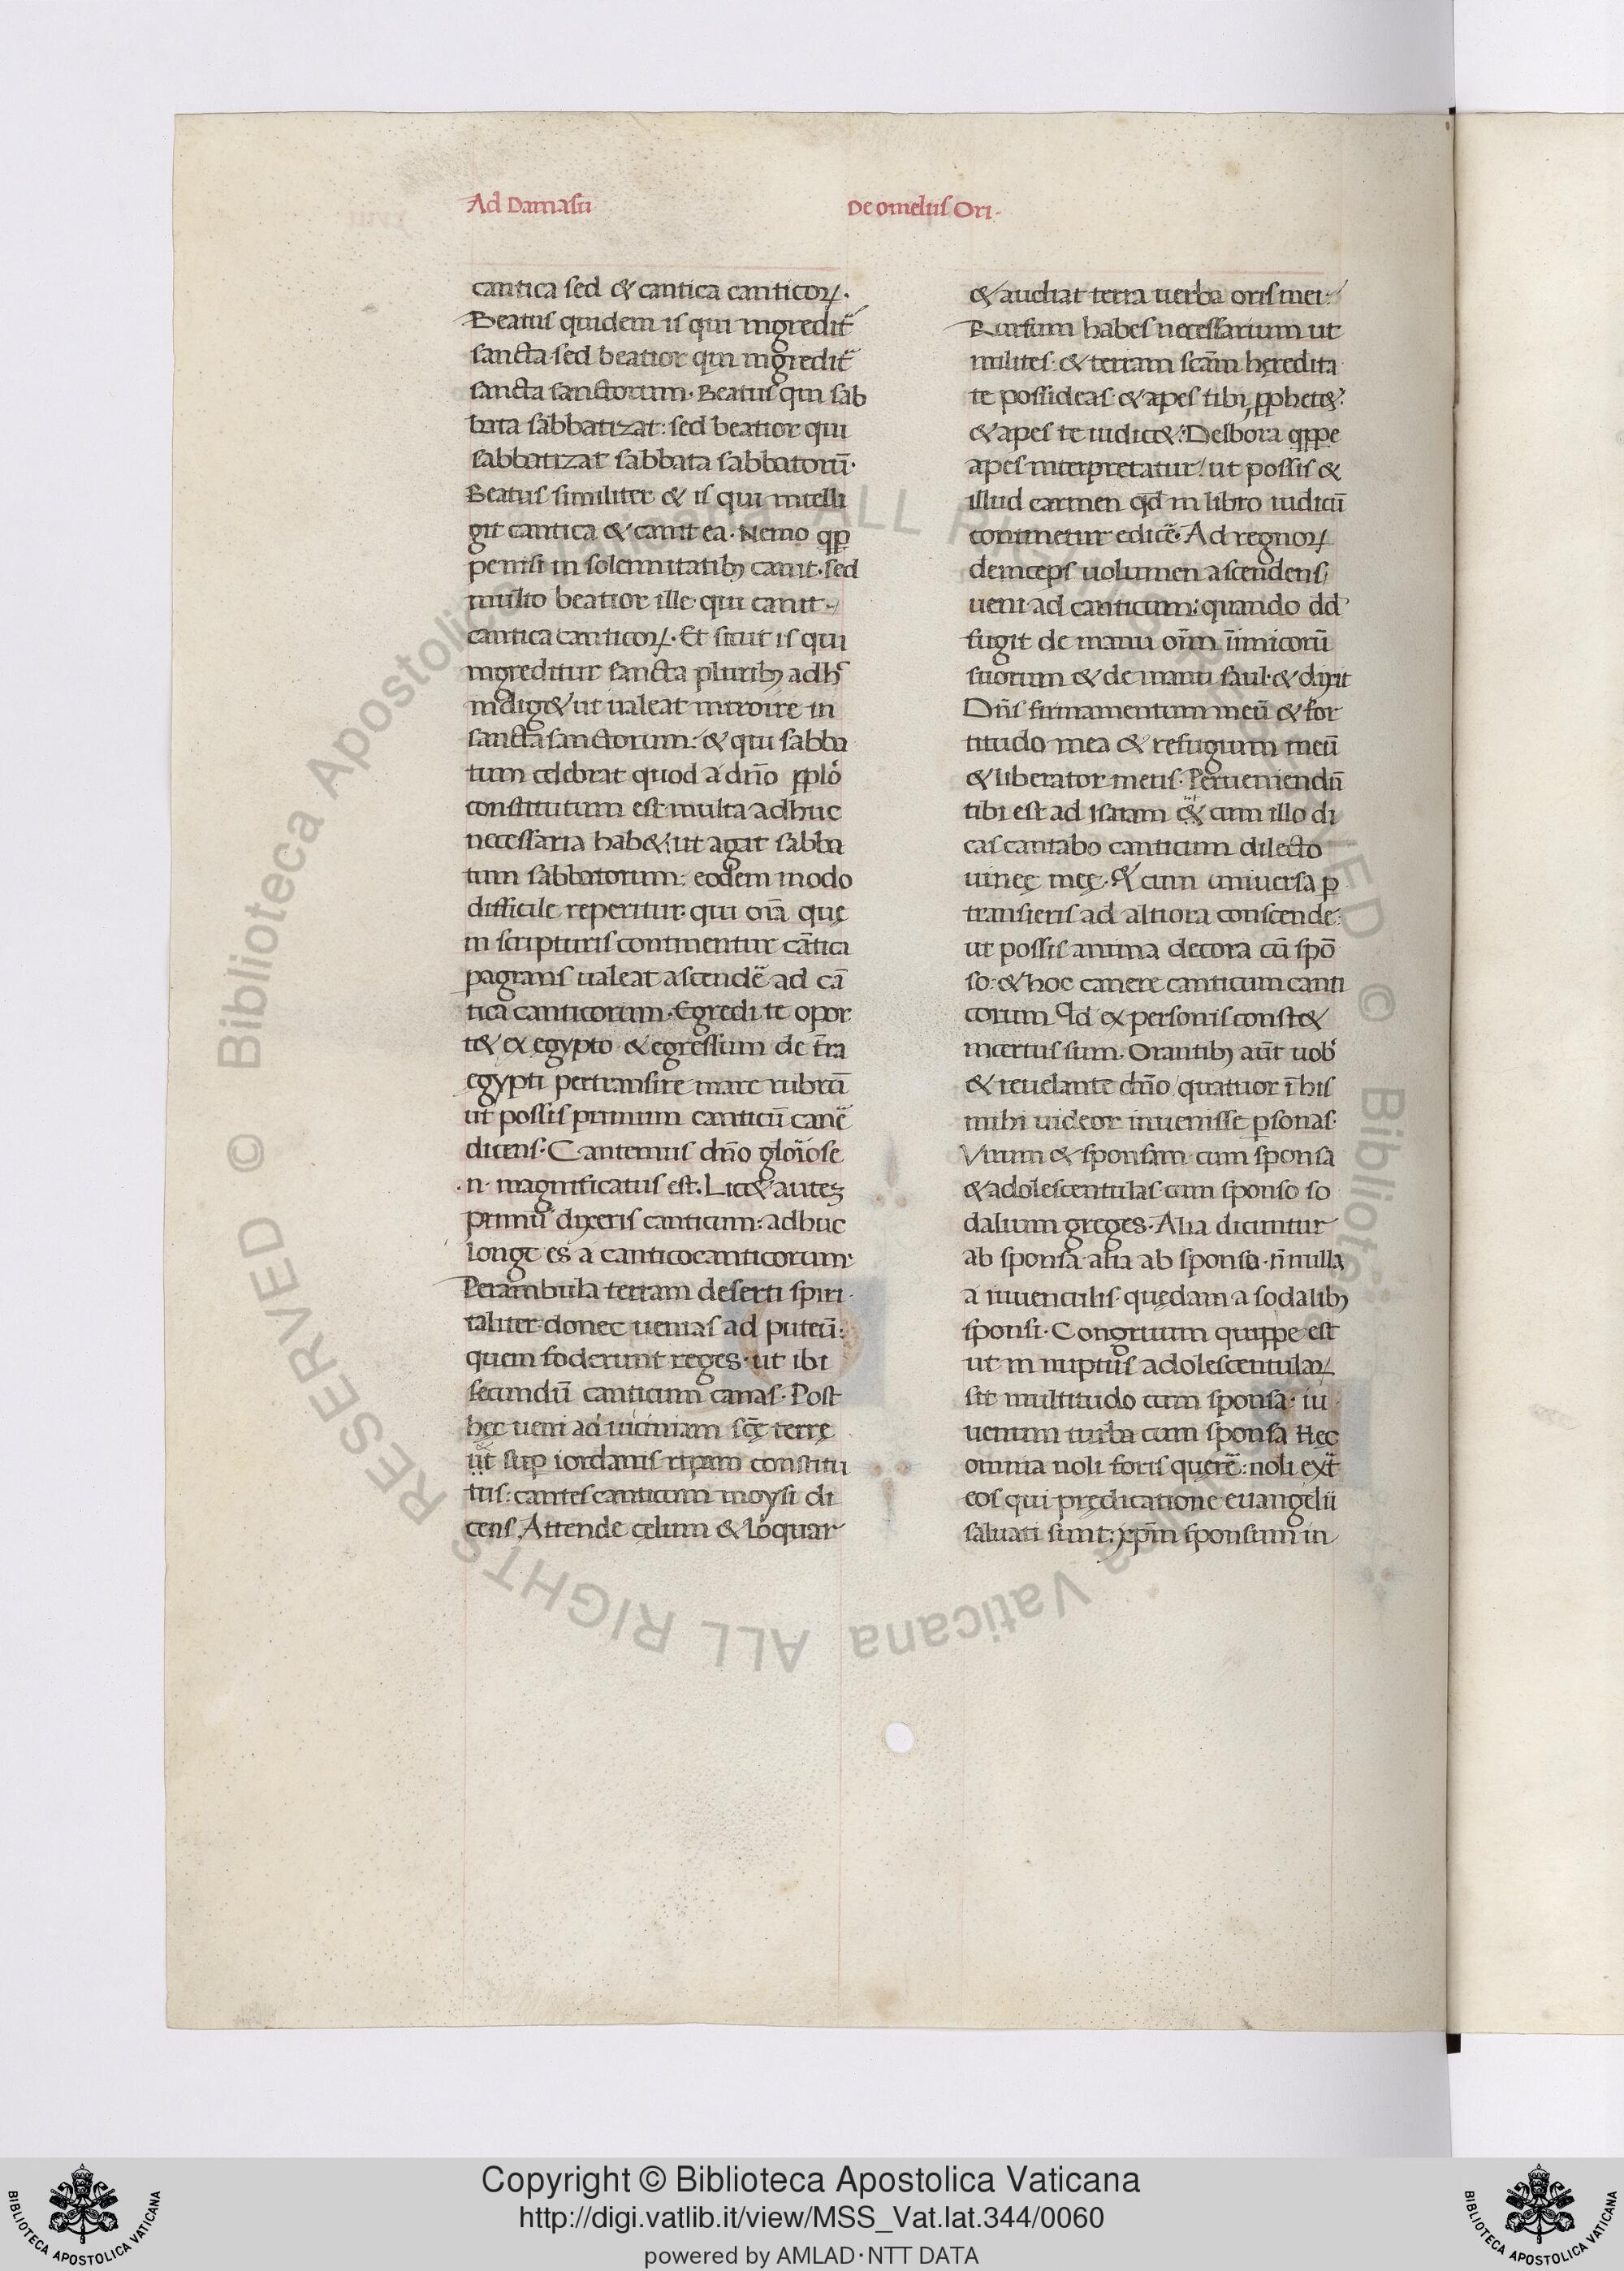 Ad Damasū
De omeliis Ori.
cantica sed & cantica canticoꝝ.
Beatus quidem is qui ingredit᷑
sancta sed beatior qui ingredit᷑
sancta sanctorum. Beatus qui sab
bata sabbatizat: sed beatior qui
sabbatizat sabbata sabbatorū.
Beatus similiter & is qui intelli
git cantica & canit ea. Nemo qͥp
pe nisi in solennitatibꝫ canit. sed
multo beatior ille qui canit
cantica canticoꝝ. Et sicut is qui
ingreditur sancta pluribꝫ adhͨ
indig& ut ualeat introire in
sancta sanctorum. & qui sabba
tum celebrat quod a dn̄o ꝓplo
constitutum est multa adhuc
necessaria hab& ut agat sabba
tum sabbatorum: eodem modo
difficile reperitur qui om̄a quę
in scripturis continentur cātica
ꝑagrans ualeat ascendē ad cā
tica canticorum. Egredi te opor
t& ex egypto & egressum de t̄ra
egypti pertransire mare rubrū
ut possis primum canticū canē
dicens. Cantemus dn̄o glōiose
.n. magnificatus est. Lic& autez
primū dixeris canticum: adhuc
longe es a cantico canticorum.
Perambula terram deserti spiri
taliter donec uenias ad puteū:
quem foderunt reges. ut ibi
secundū canticum canas. Post
hęc ueni ad uiciniam scę̄ terrę
ut suꝑ iordanis ripam constitu
tus: cantes canticum moysi di
cens. Attende cęlum & loquar
& audiat terra uerba oris mei.
Rursum habes necessarium ut
milites. & terram scām heredita
te possideas & apes tibi ꝓphet&.
& apes te iudic&. Delbora qͥppe
apes interpretatur. ut possis &
illud carmen qd̄ in libro iudicū
continetur edicē. Ad regnoꝝ
deinceps uolumen ascendens
ueni ad canticum: quando dd̄
fugit de manu om̄m īimicorū
suorum & de manu saul. & dixit
Dn̄s firmamentum meū & for
titudo mea & refugium meū
& liberator meus. Perueniendū
tibi est ad Isaiam & cum illo di
cas cantabo canticum dilecto
uineę meę. & cum uniuersa ꝑ
transieris ad altiora conscende:
ut possis anima decora cū spō
so. & hoc canere canticum canti
corum. Qd̄ ex personis const&
incertus sum. Orantibꝫ aūt uob
& reuelante dn̄o quatuor ī his
mihi uideor inuenisse ꝑsonas.
Virum & sponsam. cum sponsa
& adolescentulas. cum sponso so
dalium greges. Alia dicuntur
ab sponsa alia ab sponso. n̄nulla
a iuuenculis. quędam a sodalibꝫ
sponsi. Congruum quippe est
ut in nuptiis adolescentulaꝝ
sit multitudo cum sponsa. iu
uenum turba cum sponsa Hęc
omnia noli foris querē: noli ext̄
eos qui prędicatione euangelii
saluati sunt: xp̄m sponsum in
Copyright © Biblioteca Apostolica Vaticana
http://digi.vatlib.it/view/MSS_Vat.lat.344/0060
powered by AMLAD·NTT DATA
BIBLIOTECA APOSTOLICA VATICANA
BIBLIOTECA APOSTOLICA VATICANA